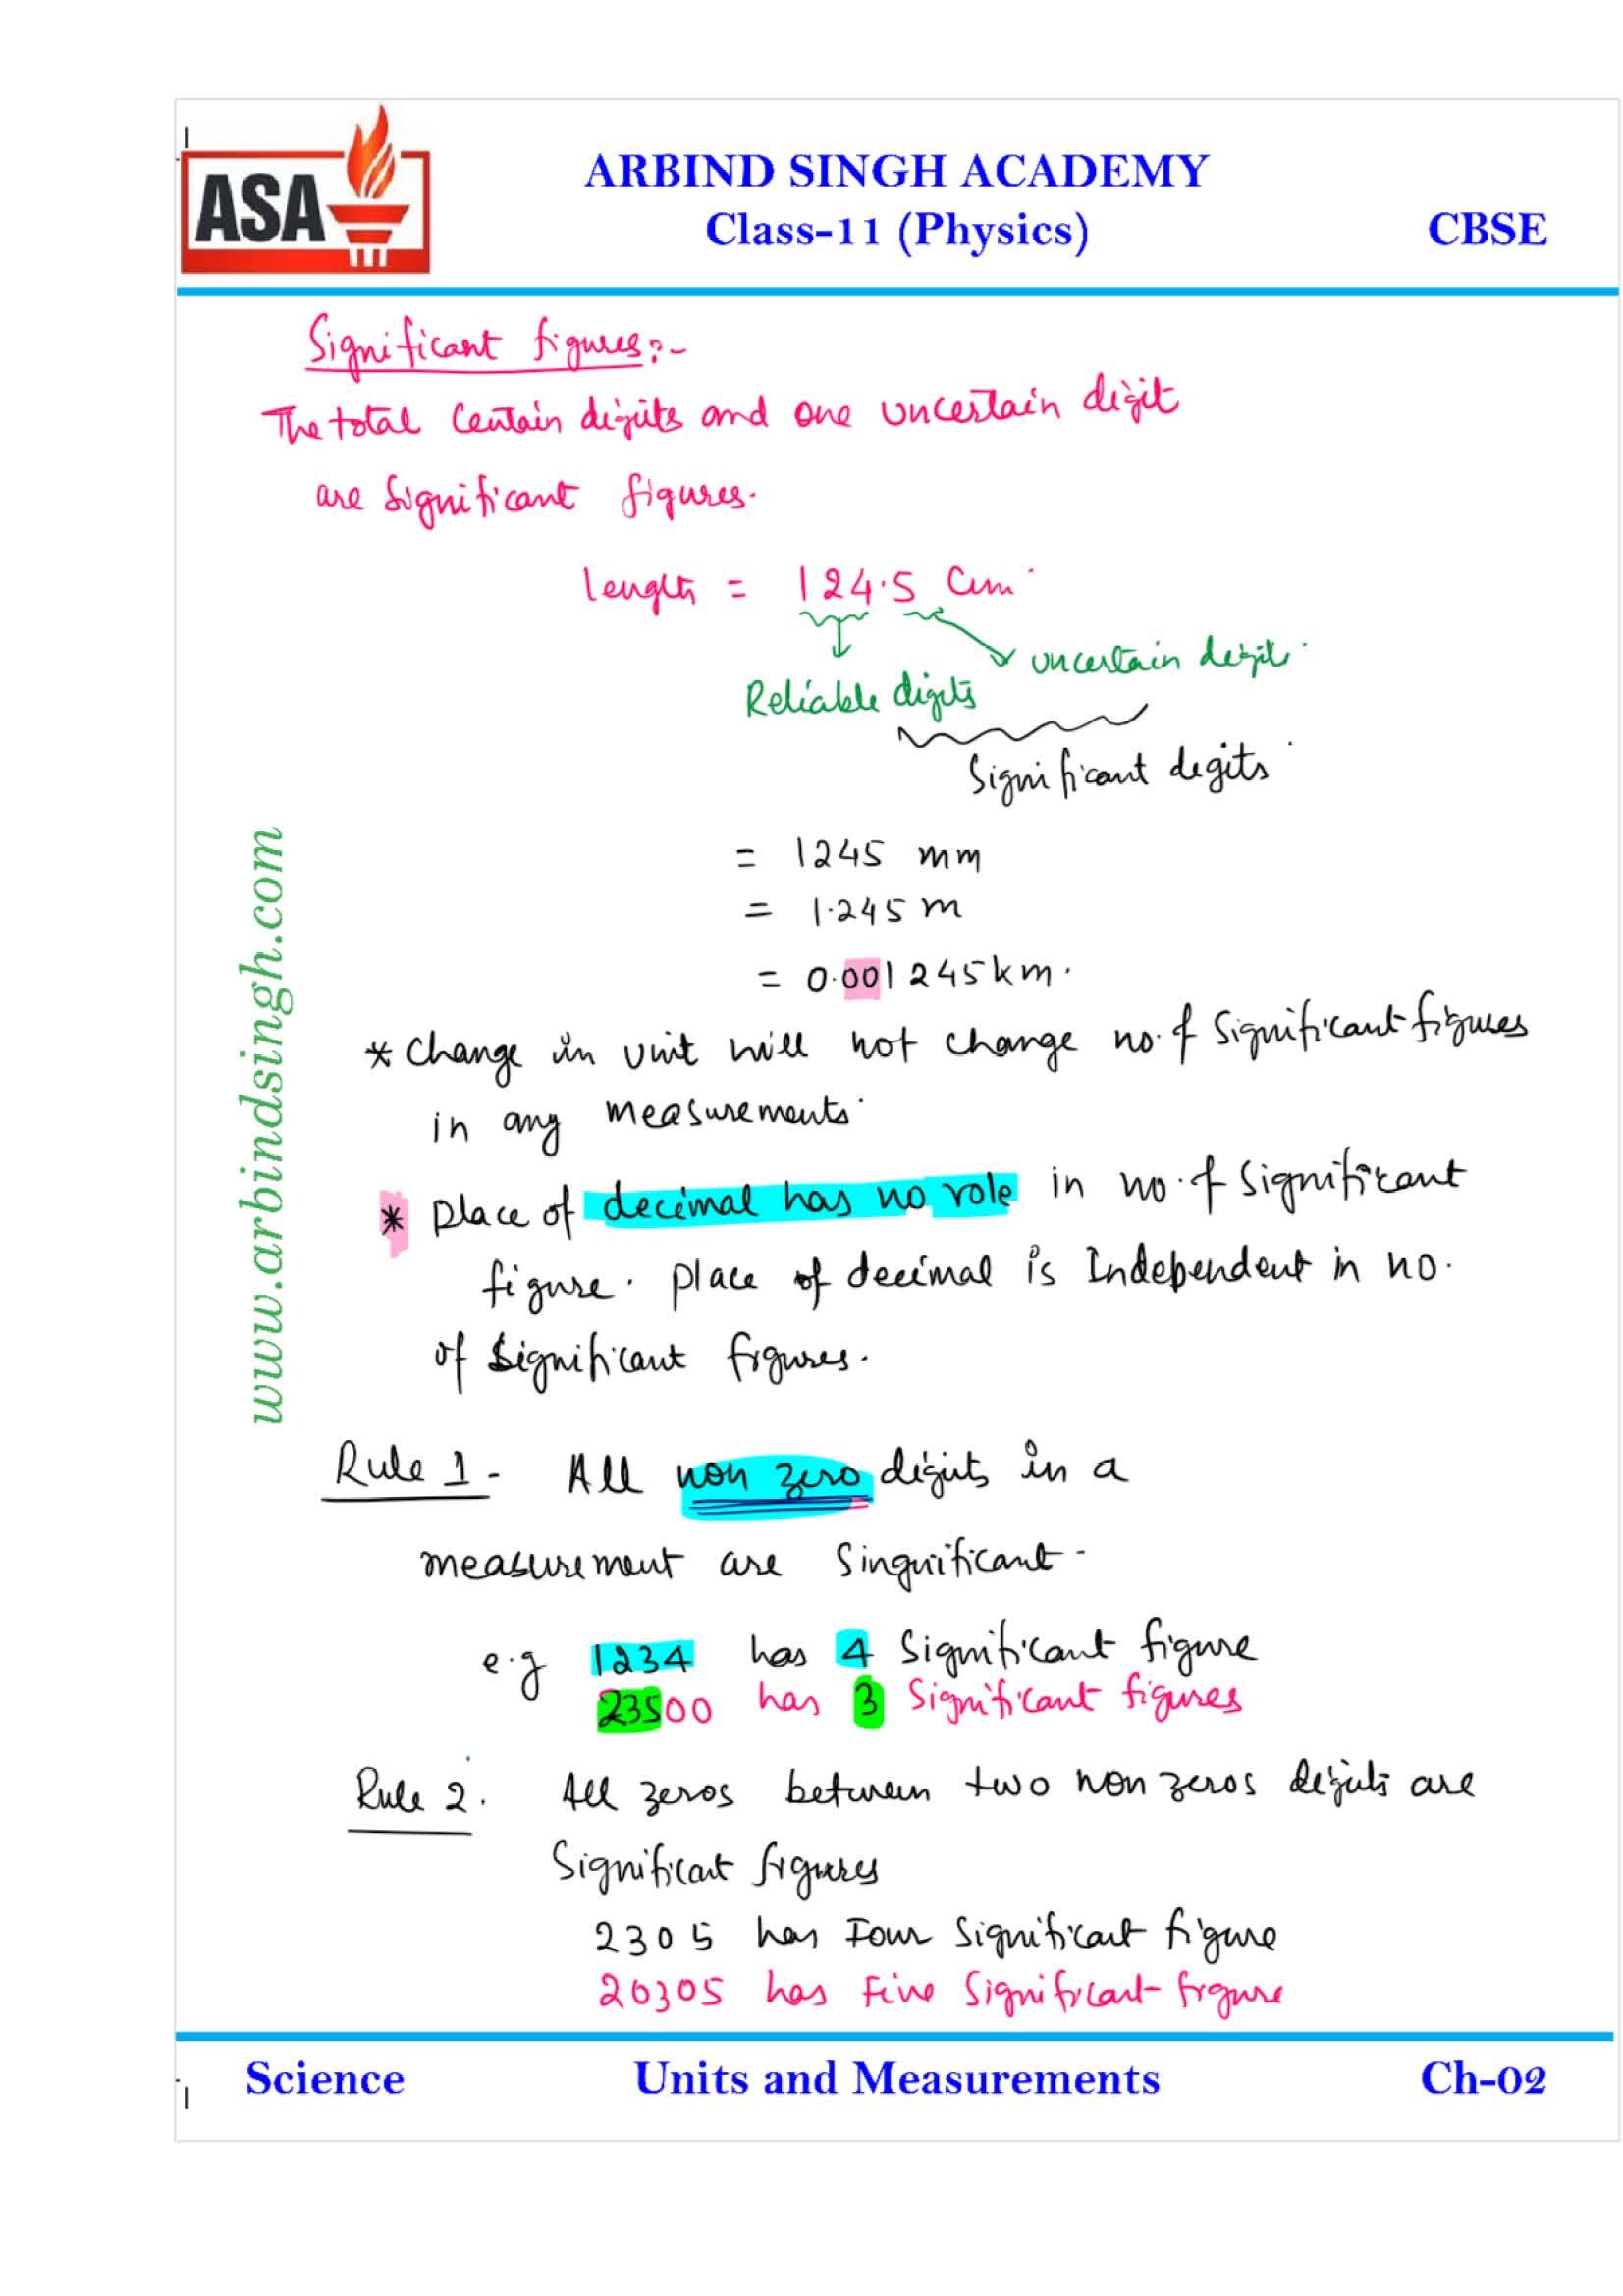 ASA
ARBIND SINGH ACADEMY
Class-11 (Physics)
CBSE
Significant figures:-
The total Centain digits and one uncertain digit
are Significant figures.
length = 124.5 Cm
Reliable digits
uncertain digit.
Significant digits
= 1245 mm
= 1.245 m
= 0.001245 km.
* Change in unit will not change no. of Significant figures
in any measurements.
* place of decimal has no role in no. of Significant
figure. place of decimal is Independent in no.
of Significant figures.
Rule 1 - All non zero digits in a
measurement are Singnificant -
e.g 1234 has 4 Significant figure
23500 has 3 Significant figures
Rule 2. All zeros between two non zeros digits are
Significant figures
2305 has Four Significant figure
20305 has Five Significant figure
www.arbindsingh.com
Science
Units and Measurements
Ch-02